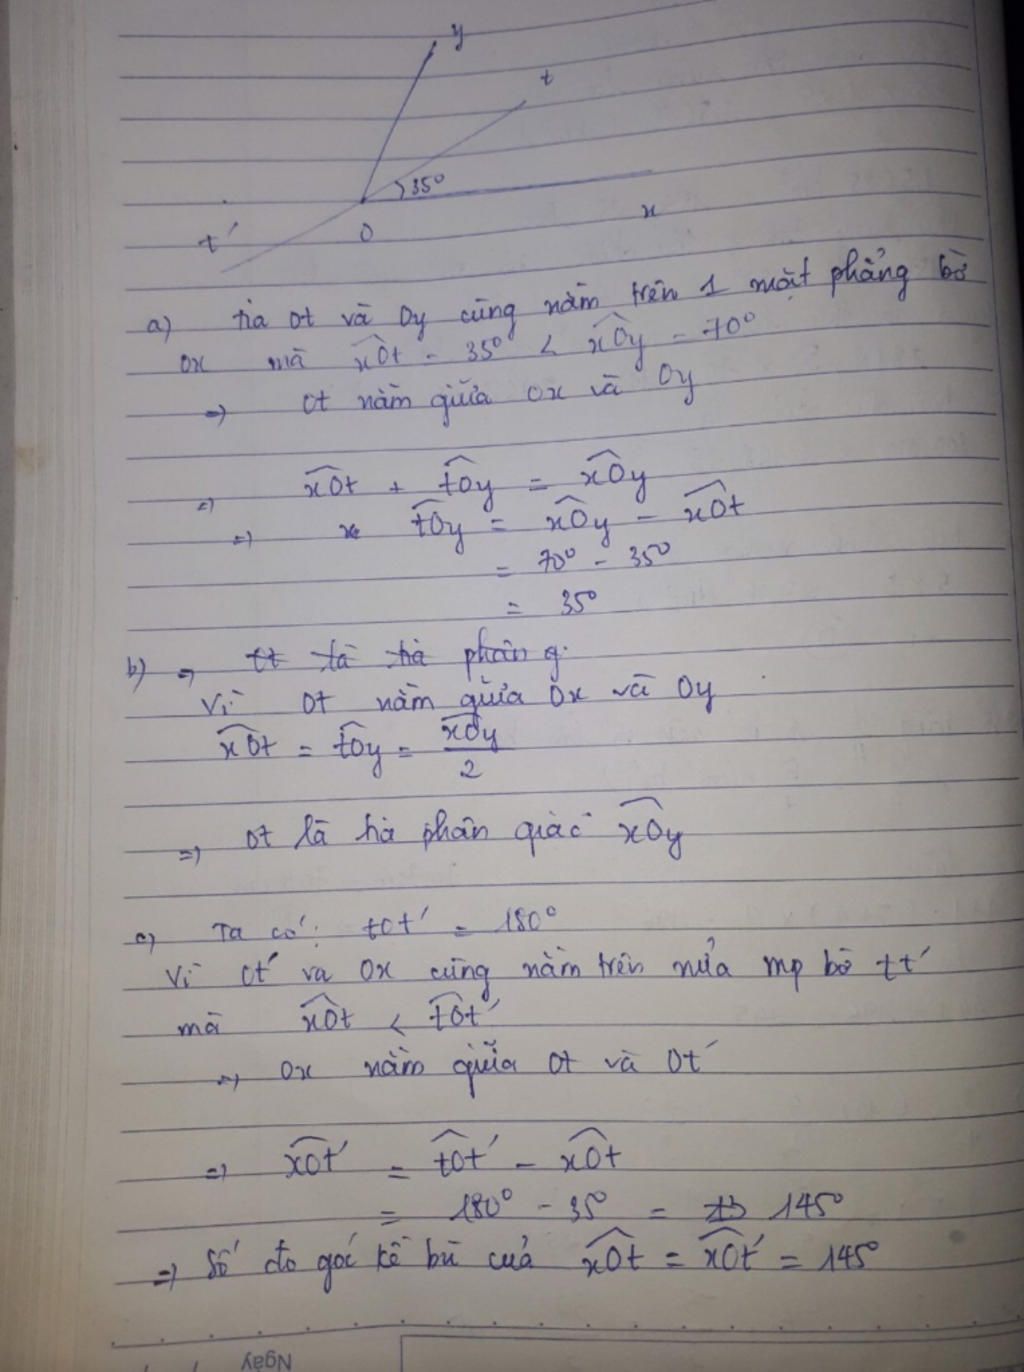 y
t
35°
x
t'
O
a) tia Ot và Oy cùng nằm trên 1 mặt phẳng bờ
Ox mà xOt = 35° < xOy = 70°
=> Ot nằm giữa Ox và Oy
=> xOt + tOy = xOy
=> tOy = xOy - xOt
= 70° - 35°
= 35°
b) => tt là tia phân g.
Vì Ot nằm giữa Ox và Oy
xOt = tOy = xOy/2
=> Ot là tia phân giác xOy
c) Ta có: tOt' = 180°
Vì Ot' va Ox cùng nằm trên nửa mp bờ tt'
mà xOt < tOt'
=> Ox nằm giữa Ot và Ot'
=> xOt' = tOt' - xOt
= 180° - 35° = 145°
=> Số đo góc kề bù của xOt = xOt' = 145°
Ngày